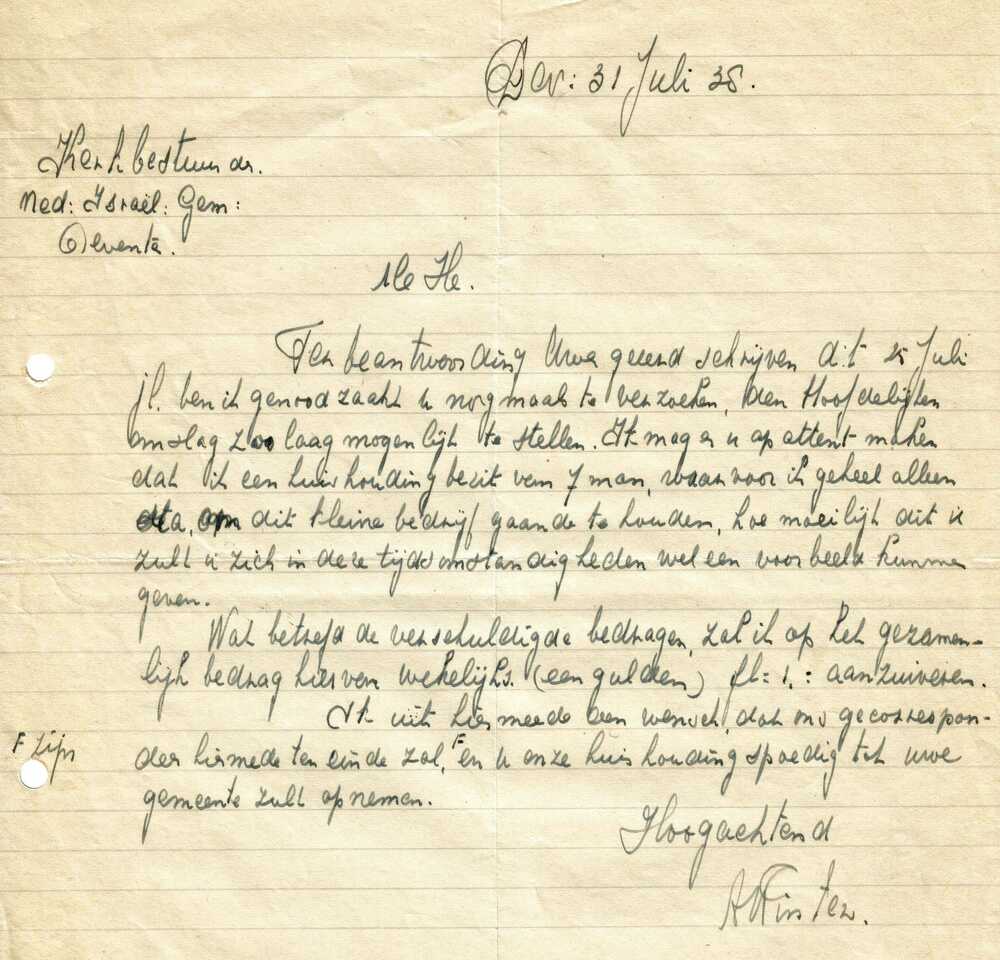 Dev: 31 Juli 38.
Kerkbestuur der.
Ned: Israël: Gem:
Deventer.
M.e He.
Ter beantwoording Uwe geeerd schrijven dit 25 Juli
jl. ben ik genoodzaakt u nogmaals te verzoeken, den Hoofdelijken
omslag zoo laag mogenlijk te stellen. Ik mag er u op attent maken
dat ik een huishouding bezit van 7 man, waarvoor ik geheel alleen
sta, om dit kleine bedrijf gaande te houden, hoe moeilijk dit is
zult u zich in deze tijdsomstandigheden wel een voorbeeld kunnen
geven.
Wat betrefd de verschuldigde bedragen, zal ik op het gezamen-
lijk bedrag hiervan wekelijks. (een gulden) fl: 1,: aanzuiveren.
Ik uit hiermeede den wensch, dat ons gecorrespon-
deer hiermede ten einde zal, F en u onze huishouding spoedig tot uwe
F zijn
gemeente zult opnemen.
Hoogachtend